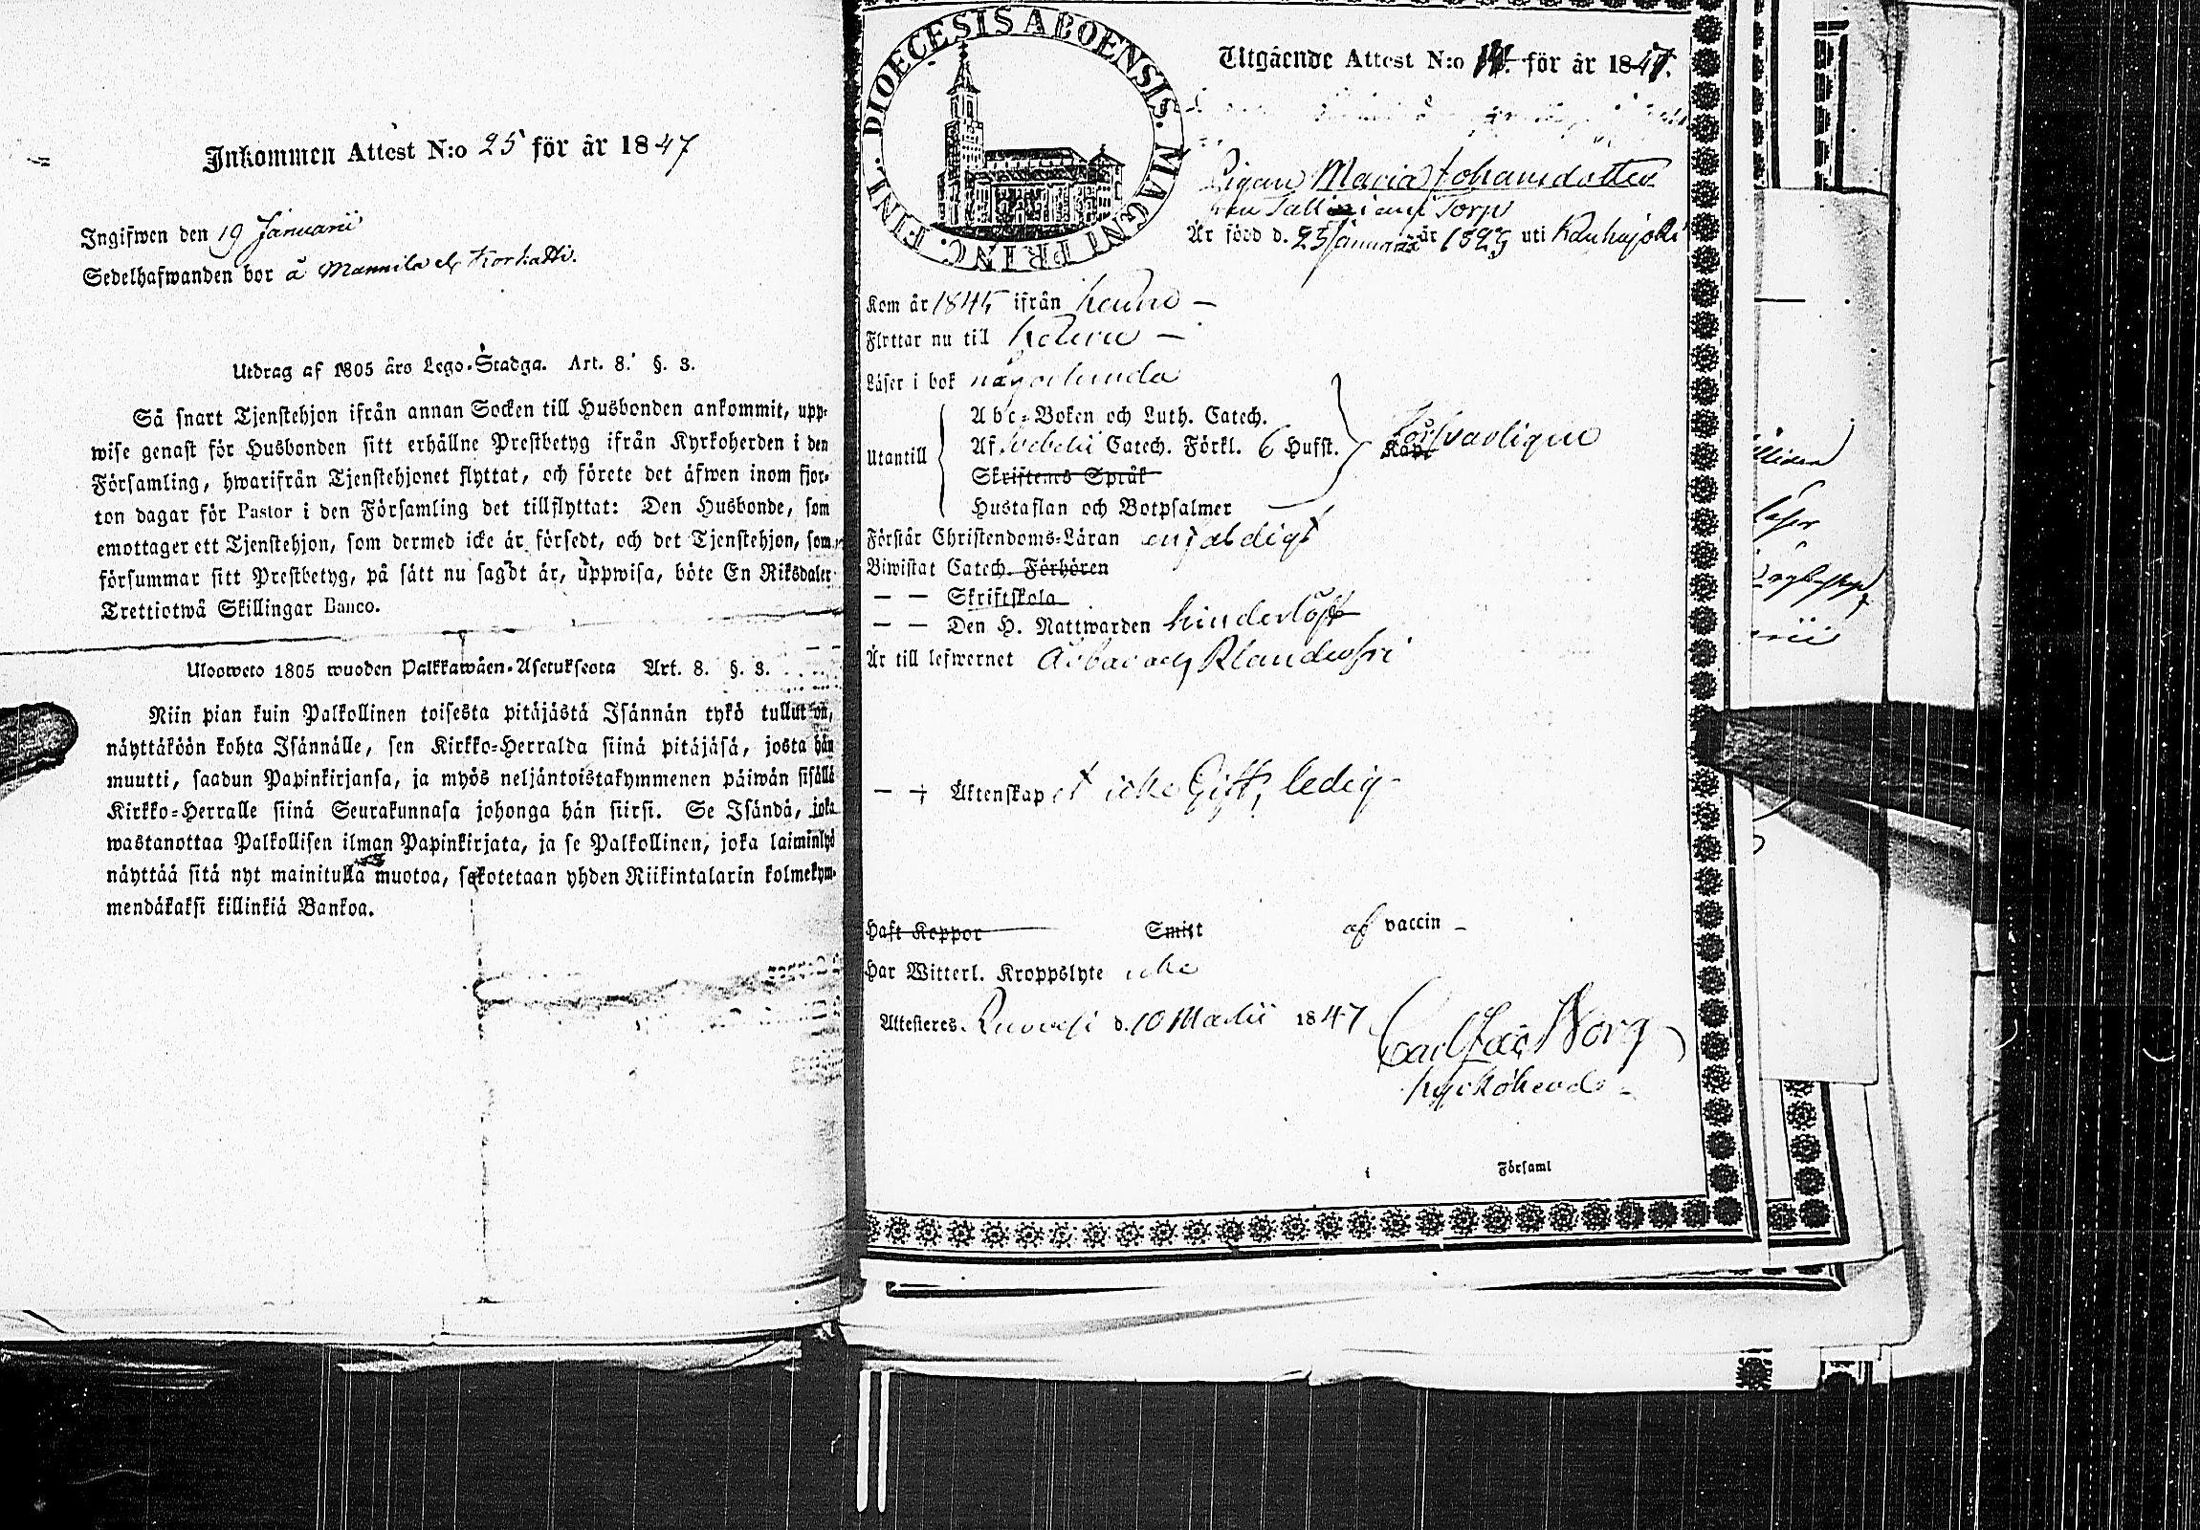 Inkommen Attest N:o 25 för år 1847
Ingifwen den 19 Januarii
Sedelhafwanden bor å Mannila
Utdrag af 1805 års Lego-Stadga. Art. 8. §. 3.
Så snart Tjenstehjon ifrån annan Socken till Husbonden ankommit, upp-
wise genast för Husbonden sitt erhållne Prestbetyg ifrån Kyrkoherden i den
Församling, hwarifrån Tjenstehjonet flyttat, och förete det äfwen inom fjor-
ton dagar för Pastor i den Församling det tillflyttat: Den Husbonde, som
emottager ett Tjenstehjon, som dermed icke är försedt, och det Tjenstehjon, som
försummar sitt Prestbetyg, på sätt nu sagdt är, uppwisa, böte En Riksdaler
Trettiotwå Skillingar Banco.
Ulosweto 1805 wuoden Palkkawäen-Asetuksesta Art. 8. §. 3.
Niin pian kuin Palkollinen toisesta pitäjästä Isännän tykö tullut on,
näyttäköön kohta Isännälle, sen Kirkko-Herralda siinä pitäjäsä, josta hän
muutti, saadun Papinkirjansa, ja myös neljäntoistakymmenen päiwän sisällä
Kirkko-Herralle siinä Seurakunnasa johonga hän siirsi. Se Isändä, joka
wastanottaa Palkollisen ilman Papinkirjata, ja se Palkollinen, joka laiminlyö
näyttää sitä nyt mainitulla muotoa, sakotetaan yhden Riikintalarin kolmekym-
mendäkaksi killinkiä Bankoa.
DIOECESIS ABOENSIS. MAGNI PRINC. FINL.
Utgående Attest N:o för år 1847.
Pigan Maria Johansdotter
Torp
Är född d. 25 Januarii år 1825 uti Kauhajoki
Kom år 1845 ifrån
Flyttar nu till
Läser i bok någorlunda
Utantill
Abc-Boken och Luth. Catech.
Af Svebelii Catech. Förkl. 6 Hufst.
Skriftens Språk
Hustaflan och Botpsalmer
försvarligen
Förstår Christendoms-Läran enfaldigt
Biwistat Catech. Förhören
— — Skriftskola
— — Den H. Nattwarden hinderlöst
Är till lefwernet ärbar och
— — Äktenskapet icke Gift, ledig
Haft Koppor Smitt af vaccin
Har Witterl. Kroppslyte icke
Attesteras Ruovesi d. 10 Martii 1847
Carl Borg
Kyrkoherde
Församl